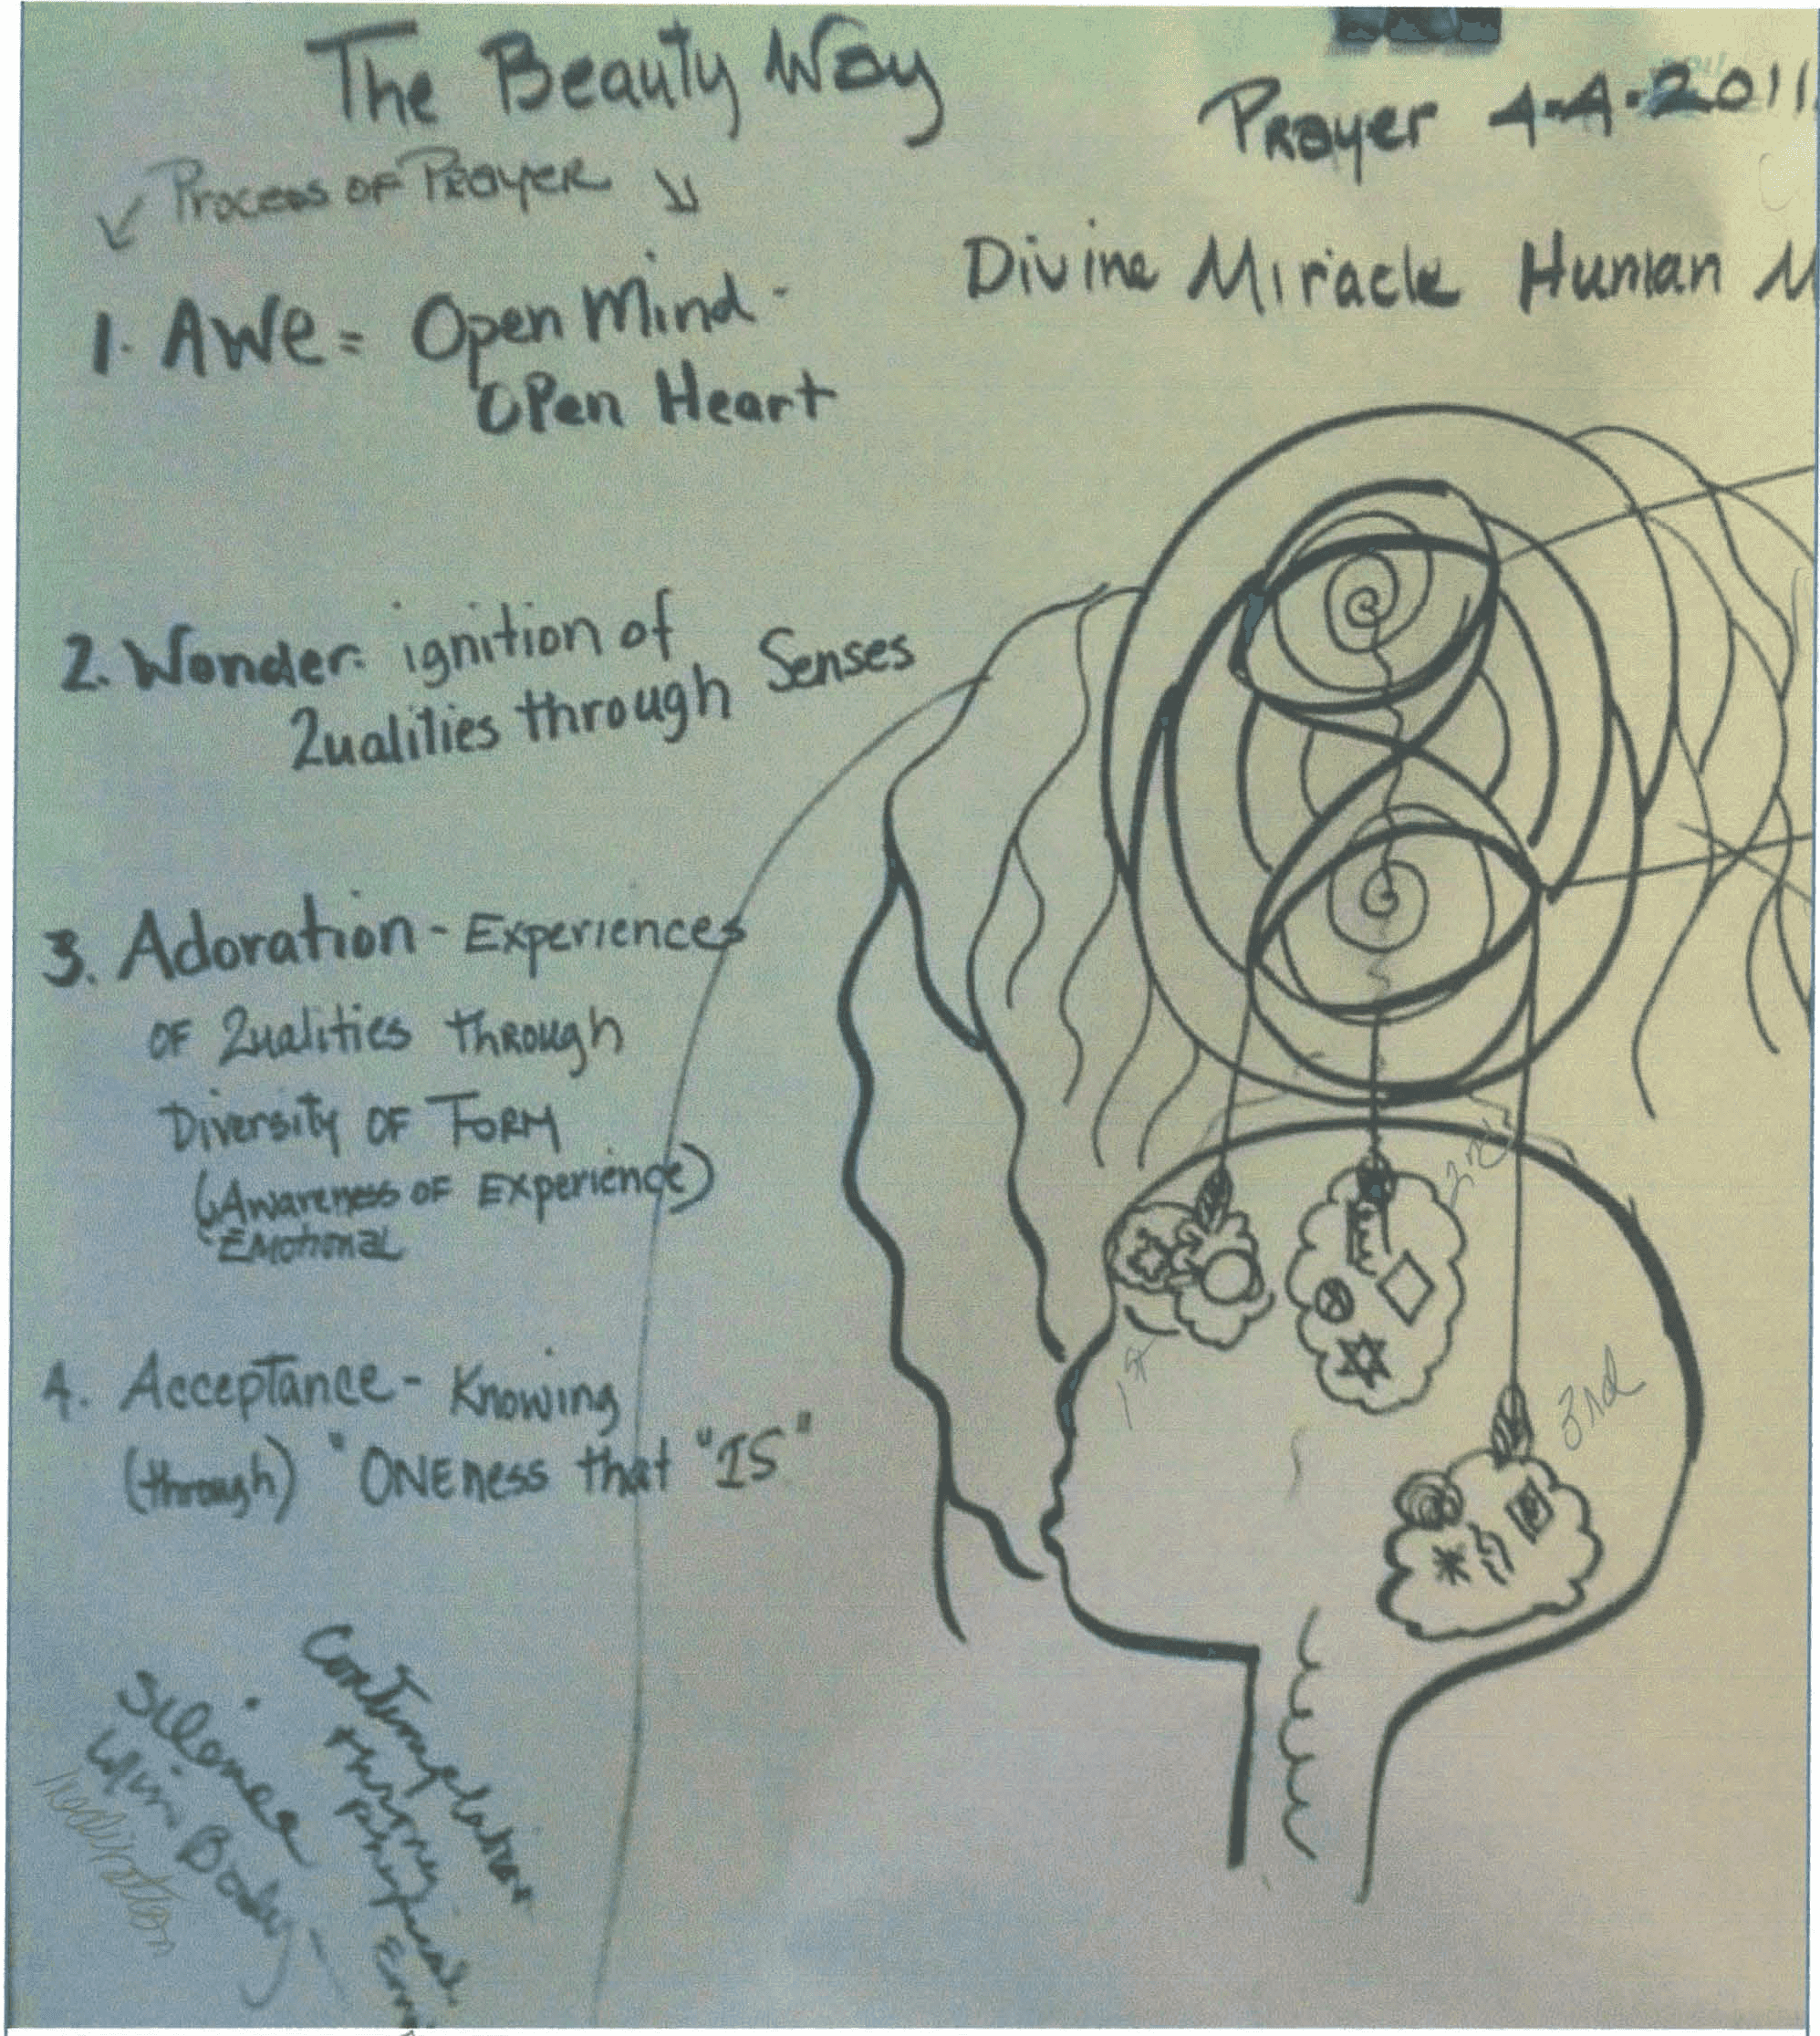 The Beauty Way
Prayer 4-4-2011
Process of Prayer
Divine Miracle Human M
1. AWE = Open Mind -
Open Heart
2. Wonder: ignition of
2ualities through Senses
3. Adoration - Experiences
OF 2ualities through
Diversity OF FORM
(Awareness OF Experience)
Emotional
4. Acceptance - Knowing
(through) "ONEness that "IS"
1st
2nd
3rd
Contemplation
through
Physical
Silence
w/in Body